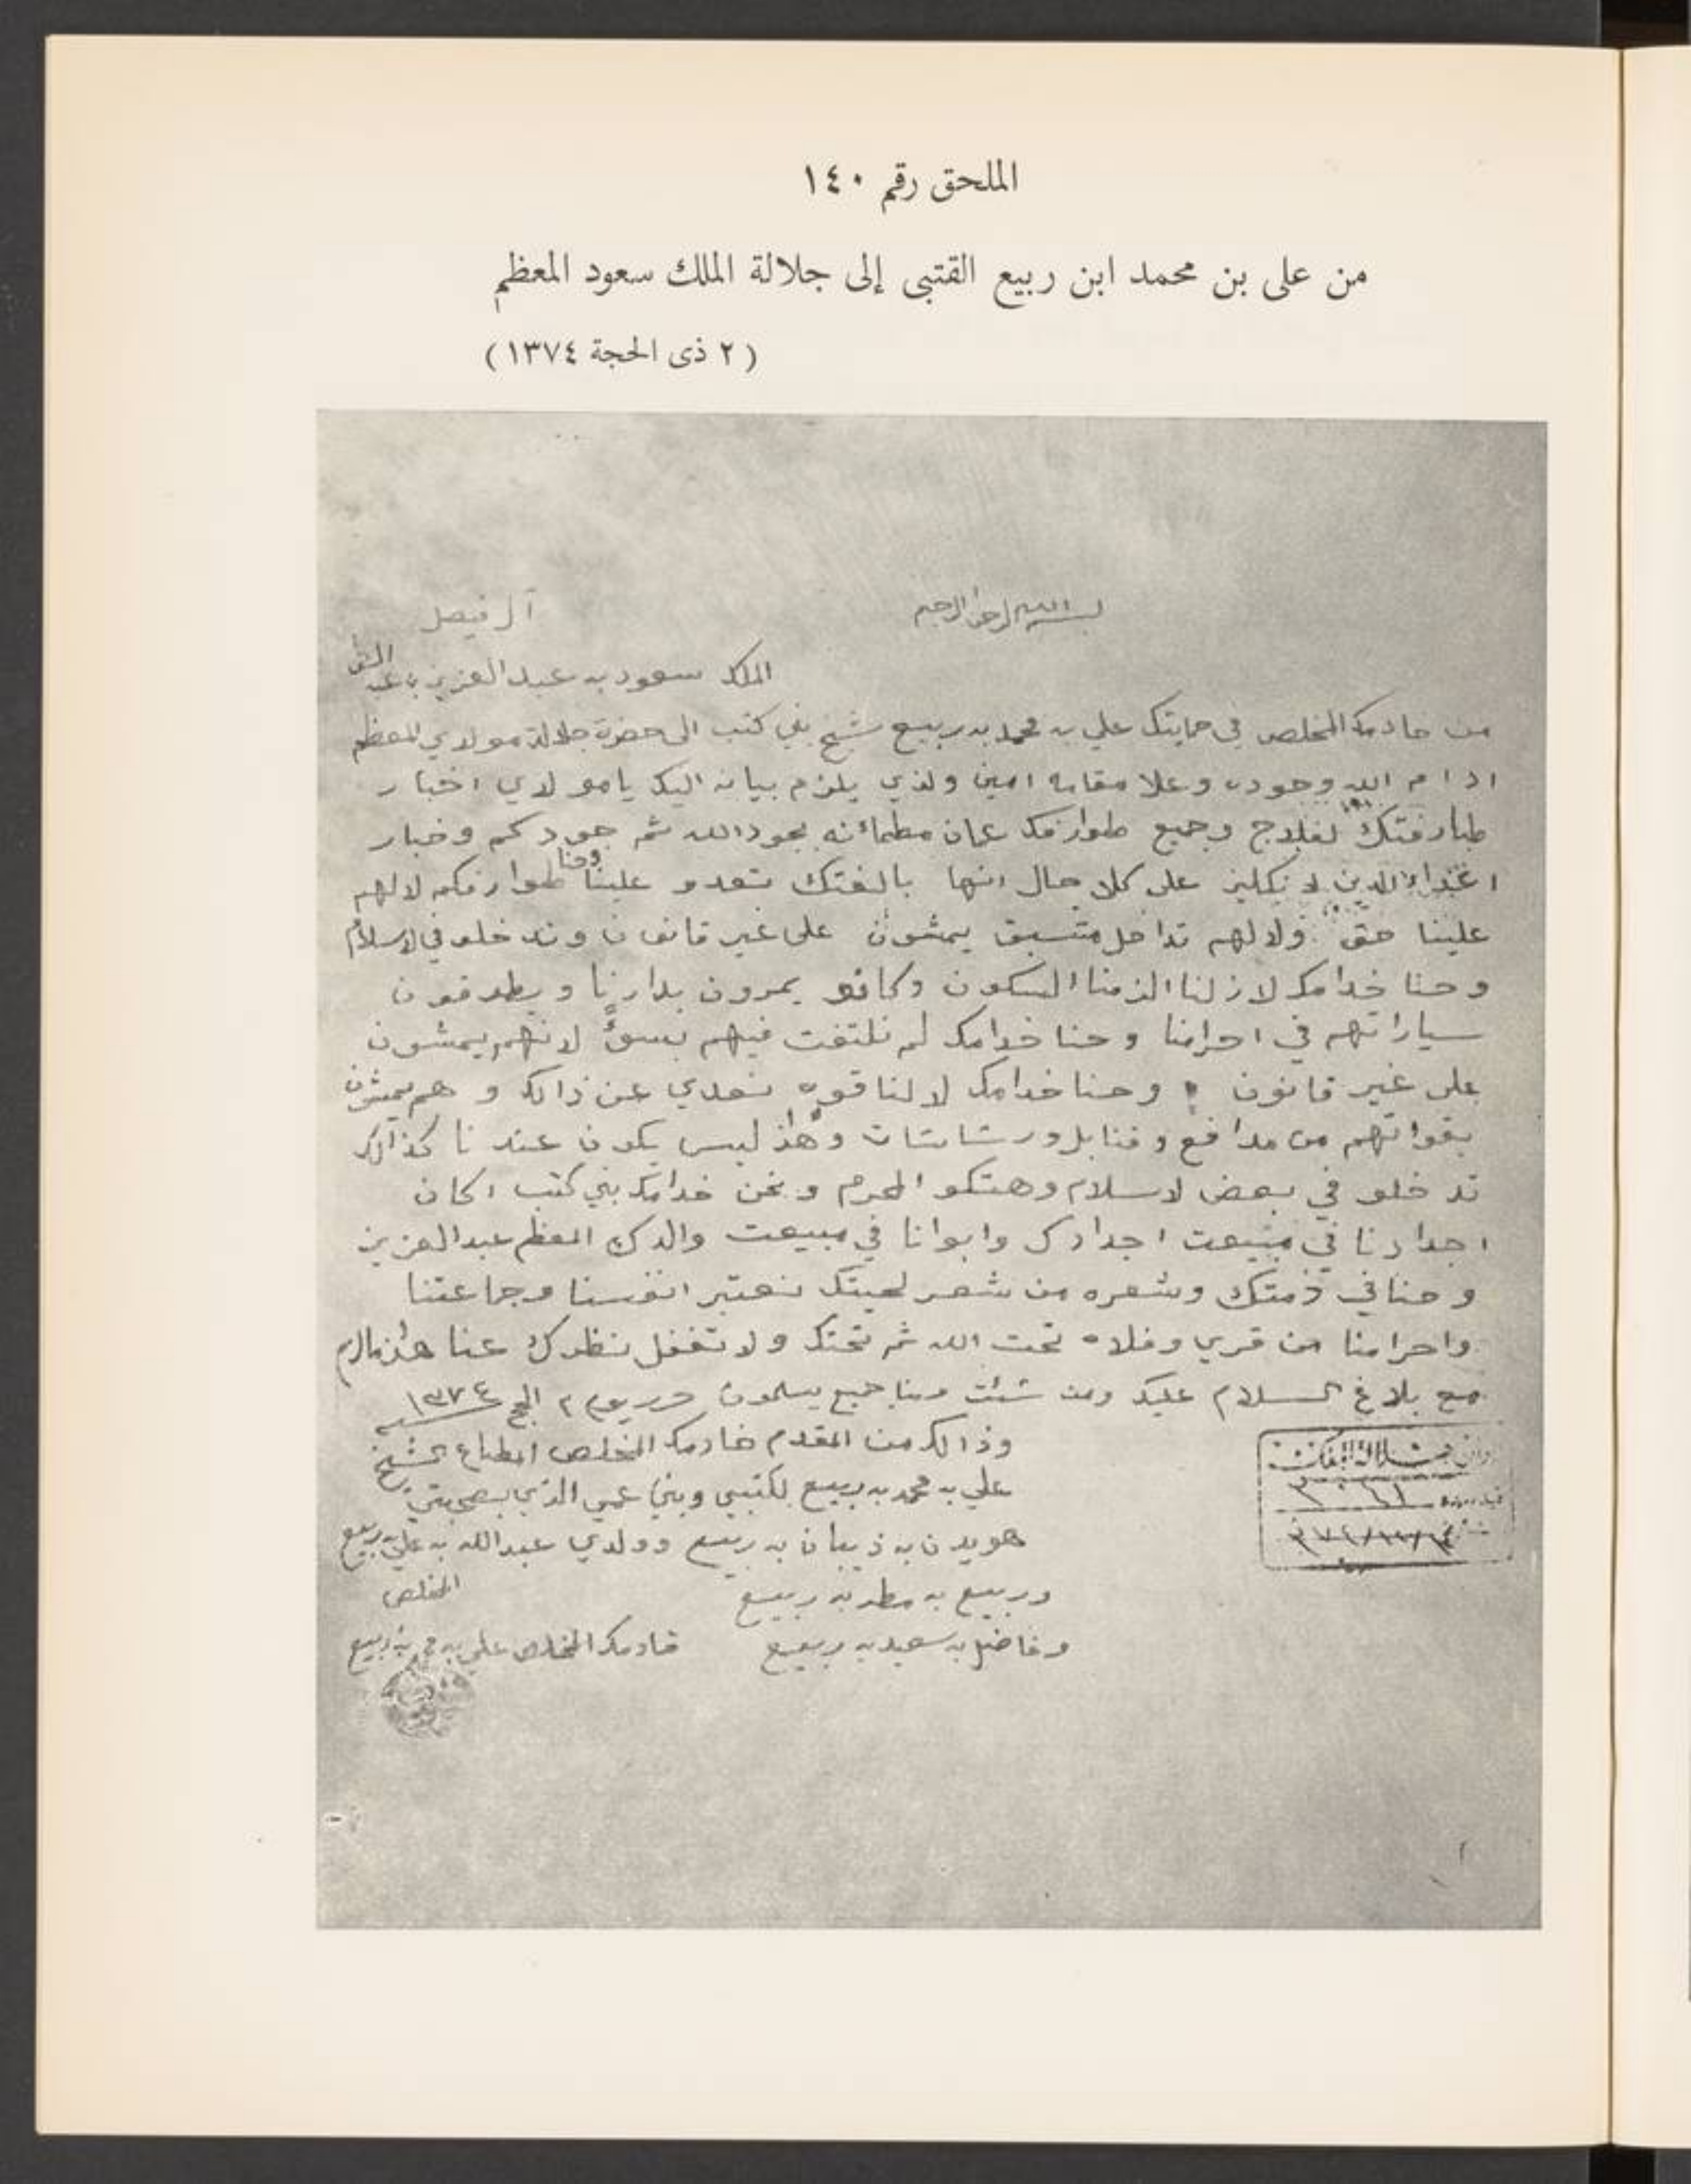 الملحق رقم ١٤٠
من على بن محمد ابن ربيع القتبى إلى جلالة الملك سعود المعظم
(٢ ذى الحجة ١٣٧٤)
بسم الله الرحمن الرحيم
آل فيصل
الملك سعود بن عبد العزيز بن عبد
من خادمك المخلص في حمايتك علي بن محمد بن ربيع شيخ بني كتب الى حضرة جلالة مولاي المعظم
ادام الله وجوده وعلا مقامه امين ولذي يلزم بيانه اليك يا مولاي اخبار
طبارفتك لفلاج وجميع طوارفك عمان مطمائنه بجود الله ثم جودكم وخبار
اعداء الدين لانكليز على كلا حال انها بالغتك بتعدو علينا وحنا طوارفكم لالهم
علينا حق ولا لهم تداخل متسبق يمشون على غير قانون وتدخلو في لاسلام
وحنا خدامك لازلنا الزمنا السكون وكانو يمرون بدارنا ويطرقون
سياراتهم في احرامنا وحنا خدامك لم نلتفت فيهم بسوء لانهم يمشون
على غير قانون وحنا خدامك لا لنا قوه نعدي عن ذالك وهم يمشون
بقواتهم من مدافع وقنابل ورشاشات وهاذ ليس يكون عندنا كذالك
تدخلو في بعض لاسلام وهتكو المحرم ونحن خدامك بني كتب اكان
اجدادنا في مبيعت اجدادك وابوانا في مبيعت والدك المعظم عبد العزيز
وحنا في ذمتك وشعره من شعر لحيتك نعتبر انفسنا وجماعتنا
واحرامنا من قري وفلاه تحت الله ثم تحتك ولا تغفل نظرك عنا هذ مالزم
مع بلاغ السلام عليك ومن شئت ومنا جميع يسلمون حرر يوم ٢ الحج ١٣٧٤
وذالك من المقدم خادمك المخلص المطاع الشيخ
علي بن محمد بن ربيع لكتبي وبني عمي الذي بصحبتي
هويدن بن ذيبان بن ربيع وولدي عبد الله بن علي بن ربيع
وربيع بن مطر بن ربيع
المخلص
وفاضل بن سعيد بن ربيع
خادمك المخلص علي بن محمد بن ربيع